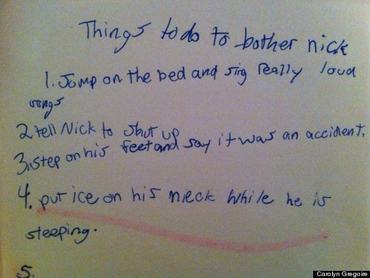 Things to do to bother nick
1. Jump on the bed and sing really loud
songs
2. tell Nick to shut up
3. step on his feet and say it was an accident.
4. put ice on his neck while he is
sleeping.
5.
Carolyn Gregoire